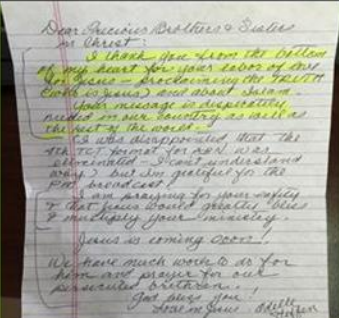 Dear Precious Brothers & Sisters
in Christ:
I thank you from the bottom
of my heart for your labor of love
for Jesus - proclaiming the TRUTH
(who is Jesus) and about Islam.
Your message is desperately
needed in our country as well as
the rest of the world.
(I was disappointed that the
format for was
eliminated - I can't understand
why) but I'm grateful for the
PM broadcast!
I am praying for your safety
& that Jesus would greatly bless
& multiply your ministry.
Jesus is coming soon!
We have much work to do for
him and prayer for our
persecuted brethren.
God bless you!
Love in Jesus,